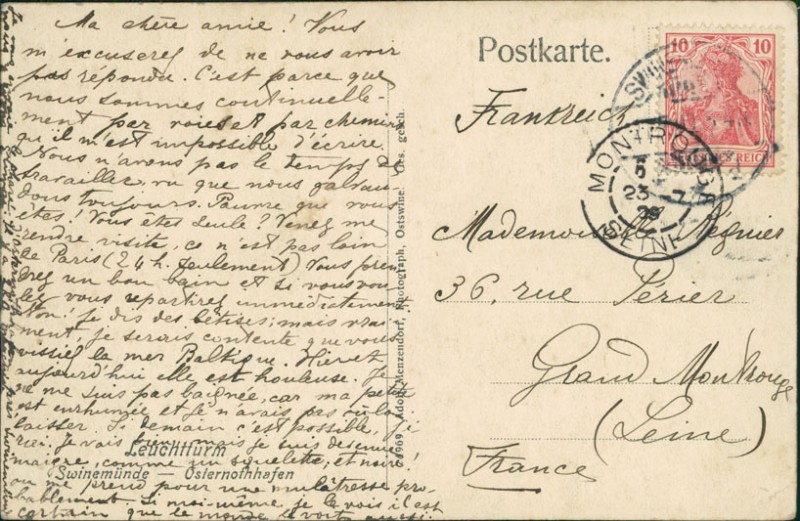 Ma chère amie! Vous
m'excuserez de ne vous avoir
pas répondu. C'est parce que
nous sommes continuelle-
ment par voies et par chemins
qu'il m'est impossible d'écrire.
Nous n'avons pas le temps de
travailler, vu que nous galvau-
dons toujours. Pauvre que vous
êtes! Vous êtes seule? Venez me
rendre visite, ce n'est pas loin
de Paris (24 h. seulement) Vous pren
drez un bon bain et si vous vou
lez vous repartirez immédiatement
Non! je dis des bêtises; mais vrai
ment, je serais contente que vous
vissiez la mer Baltique. Hier et
aujourd'hui elle est houleuse. Je
ne me suis pas baignée, car ma petite
est enrhumée et je n'avais pas voulu
laisser. Si demain c'est possible, j'i
rai. Je vais bien, mais je suis devenue
maigre, comme un squelette, et noire!
on me prend pour une mulâtresse pro-
bablement. Si moi-même je le vois il est
certain que le monde le voit aussi.
Leuchtturm
Swinemünde – Osternothhafen
Adolf Menzendorf, Photograph, Ostswine. Ges. gesch.
Postkarte.
10 10
DEUTSCHES REICH
SWINE
MONTROUGE
5
23 - 7
SEINE
Frankreich
Mademoiselle Régnier
36, rue Périer
Grand Montrouge
(Seine)
France